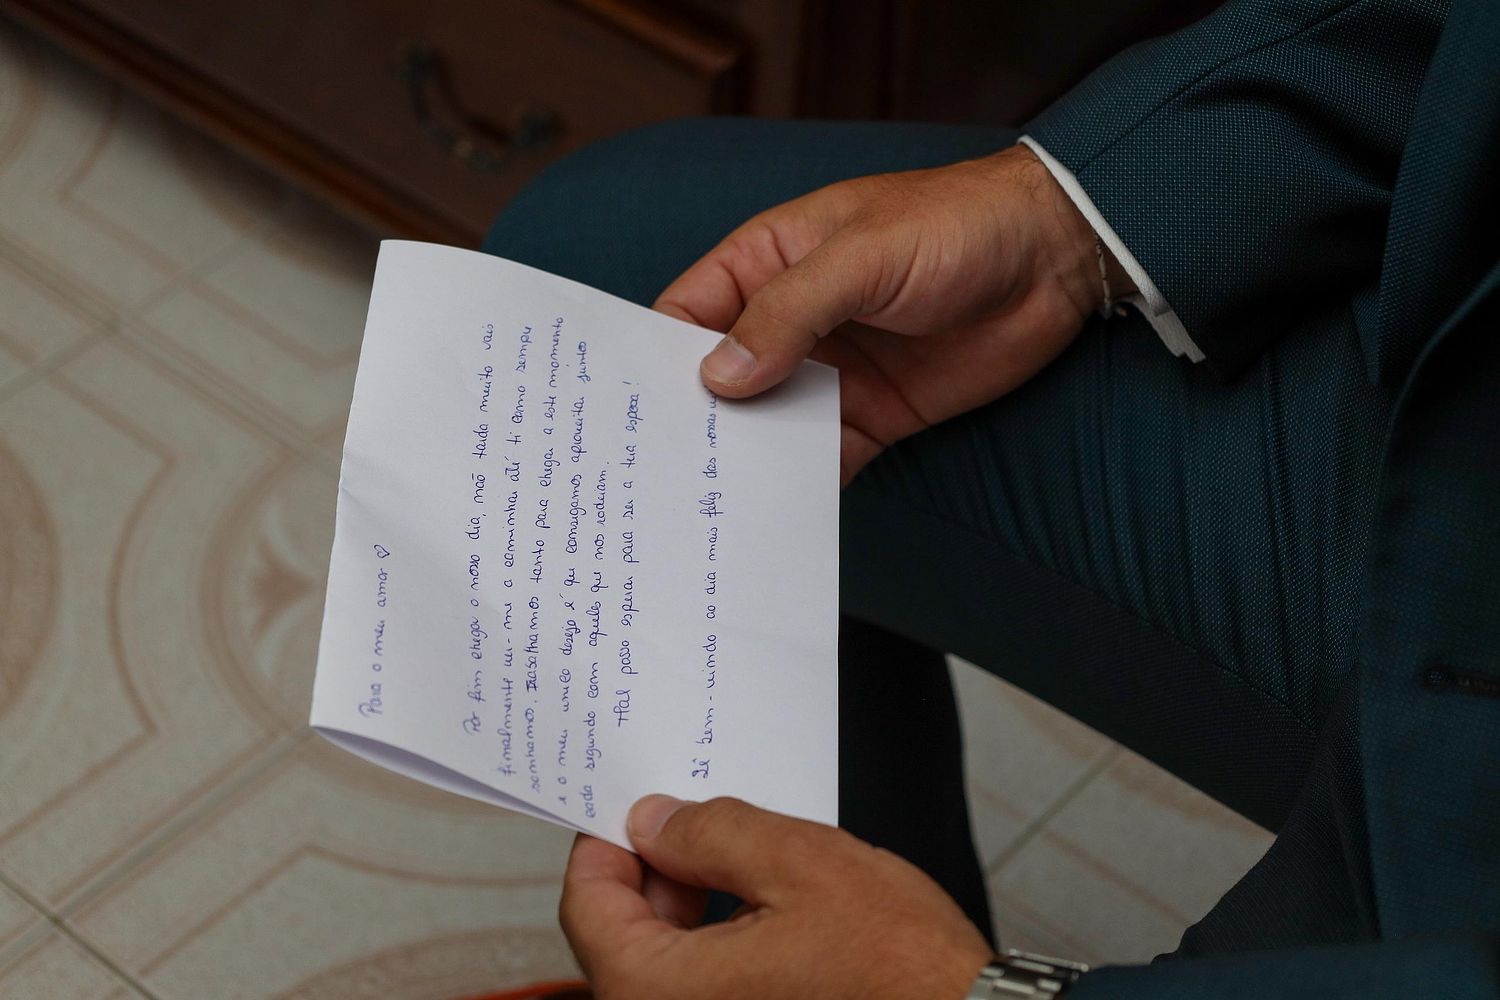 Para o meu amor ♡
Por fim chega o nosso dia, não tarda muito vais
finalmente ver-me a caminhar até ti como sempre
sonhamos. Trabalhamos tanto para chegar a este momento
e o meu unico desejo é que consigamos aproveitar juntos
cada segundo com aqueles que nos rodeiam.
Mal posso esperar para ser a tua esposa!
Sê bem-vindo ao dia mais feliz das nossas